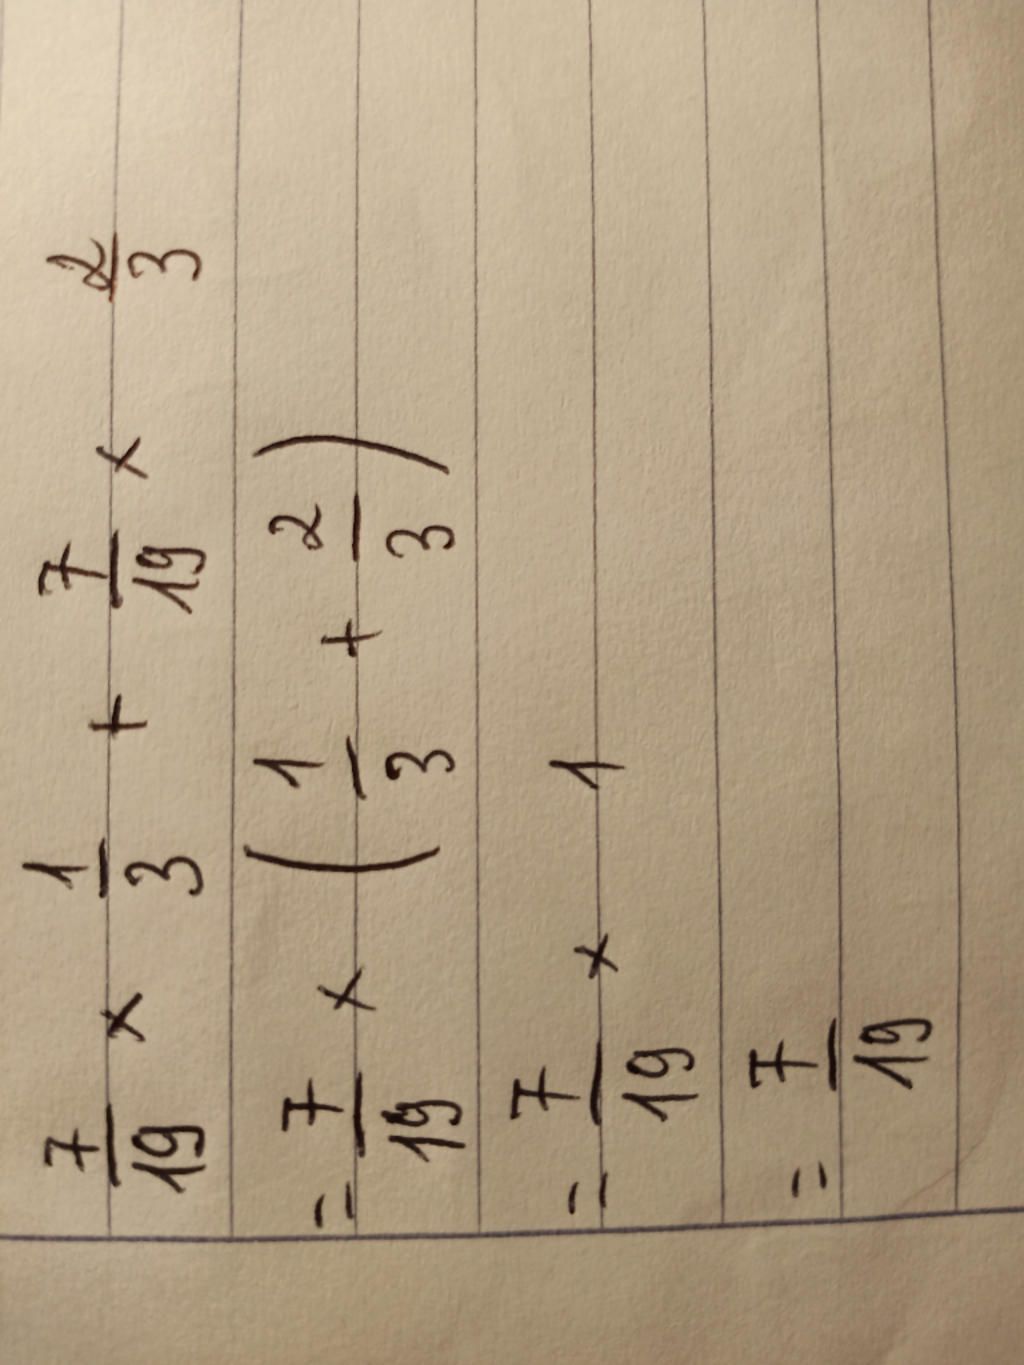 7/19 × 1/3 + 7/19 × 2/3
= 7/19 × (1/3 + 2/3)
= 7/19 × 1
= 7/19